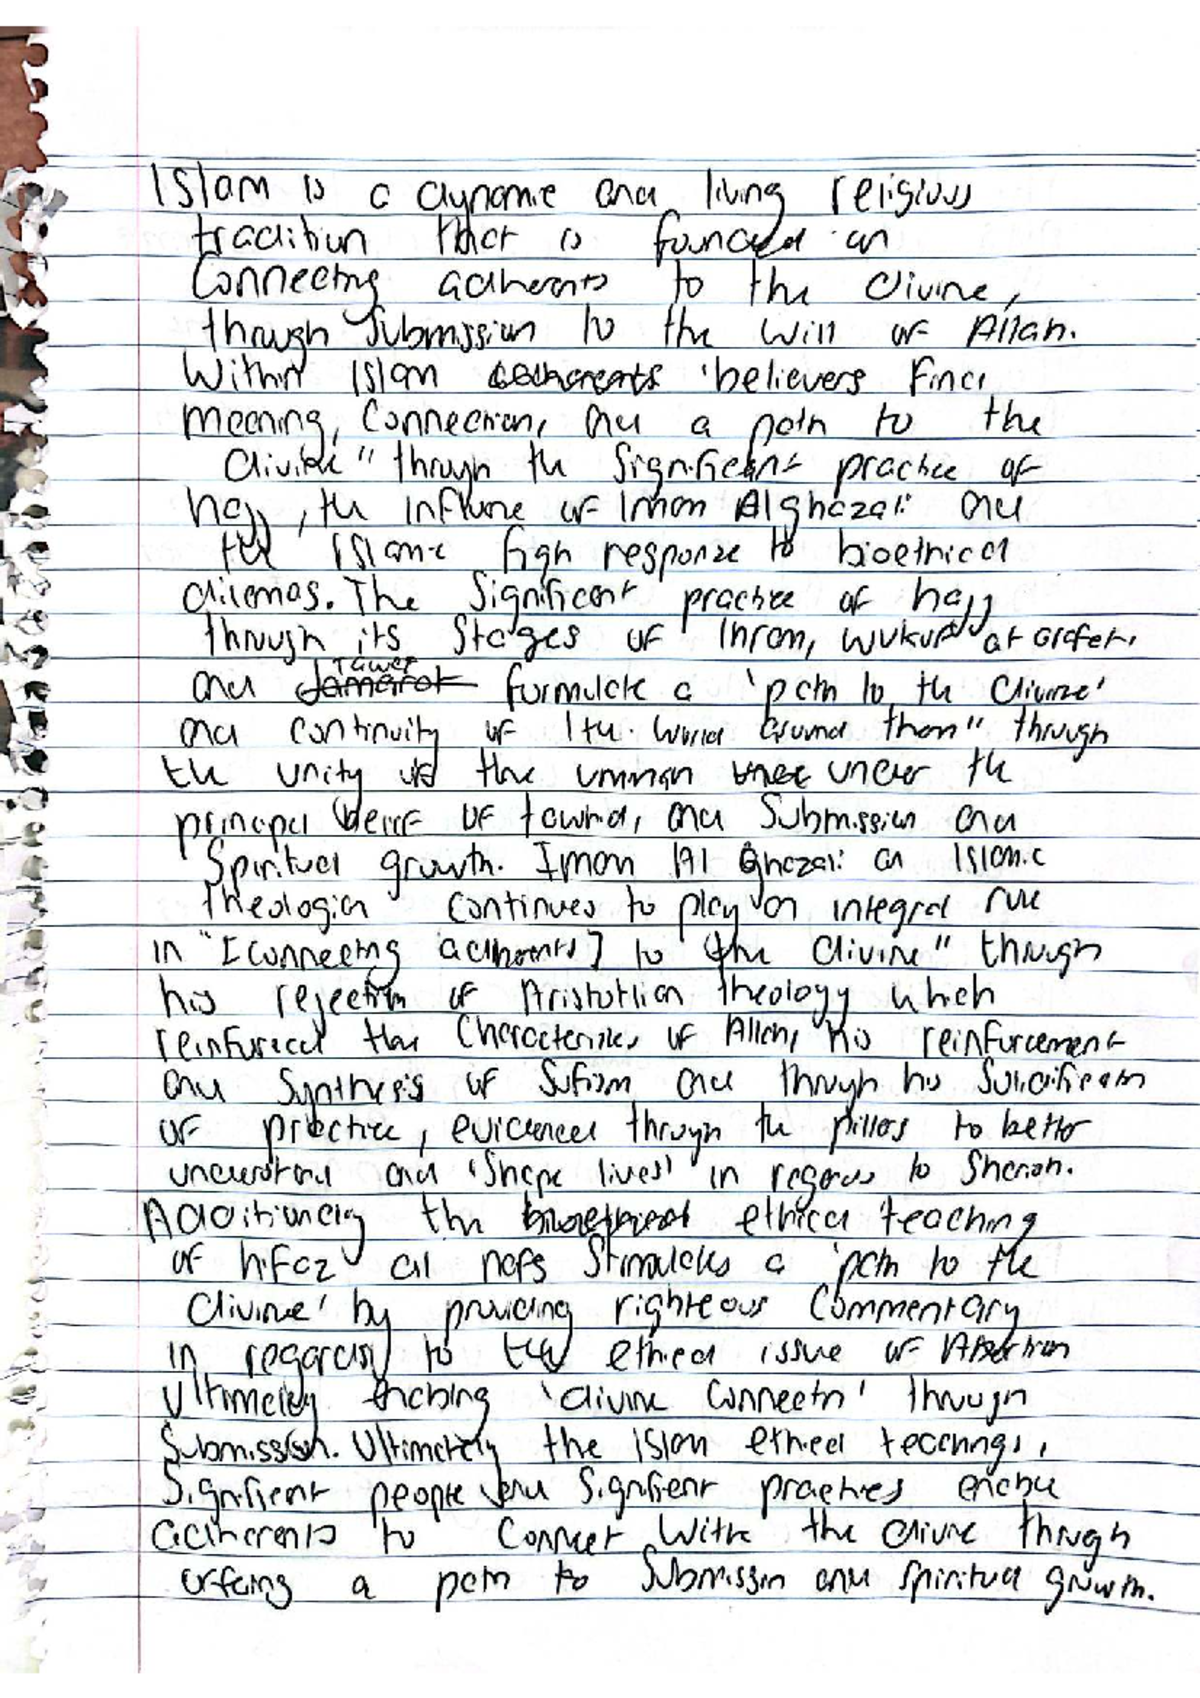 Islam is a dynamic and living religious
tradition that is founded on
Connecting adherents to the divine,
through Submission to the will of Allah.
Within Islam adherents 'believers find
meaning, connection, and a path to the
divine" through the significant practice of
hajj, the influence of Imam Alghazali and
the Islamic fiqh response to bioethical
dilemas. The significant practice of hajj
through its stages of Ihram, wukuf at arafat,
and Jamarat Tawaf formulate a 'path to the divine'
and continuity of 'the world around them" through
the unity of the ummah under the
principal belief of tawhid, and Submission and
Spiritual growth. Imam Al Ghazali an Islamic
theologian continues to play an integral role
in "[connecting adherents] to the divine" through
his rejection of Aristotlian theology which
reinforced the Characteristics of Allah, his reinforcement
and synthesis of Sufism and through his
of practice, evidenced through the pillars to better
understand and 'shape lives' in regards to Shariah.
Additionally the ethical teaching
of hifaz al nafs Stimulates a 'path to the
divine' by providing righteous commentary
in regards to the ethical issue of Abortion
Ultimately enabling 'divine connection' through
Submission. Ultimately the Islam ethical teachings,
Significant people and Significant practices enable
adherents to connect with the divine through
offering a path to Submission and spiritual growth.